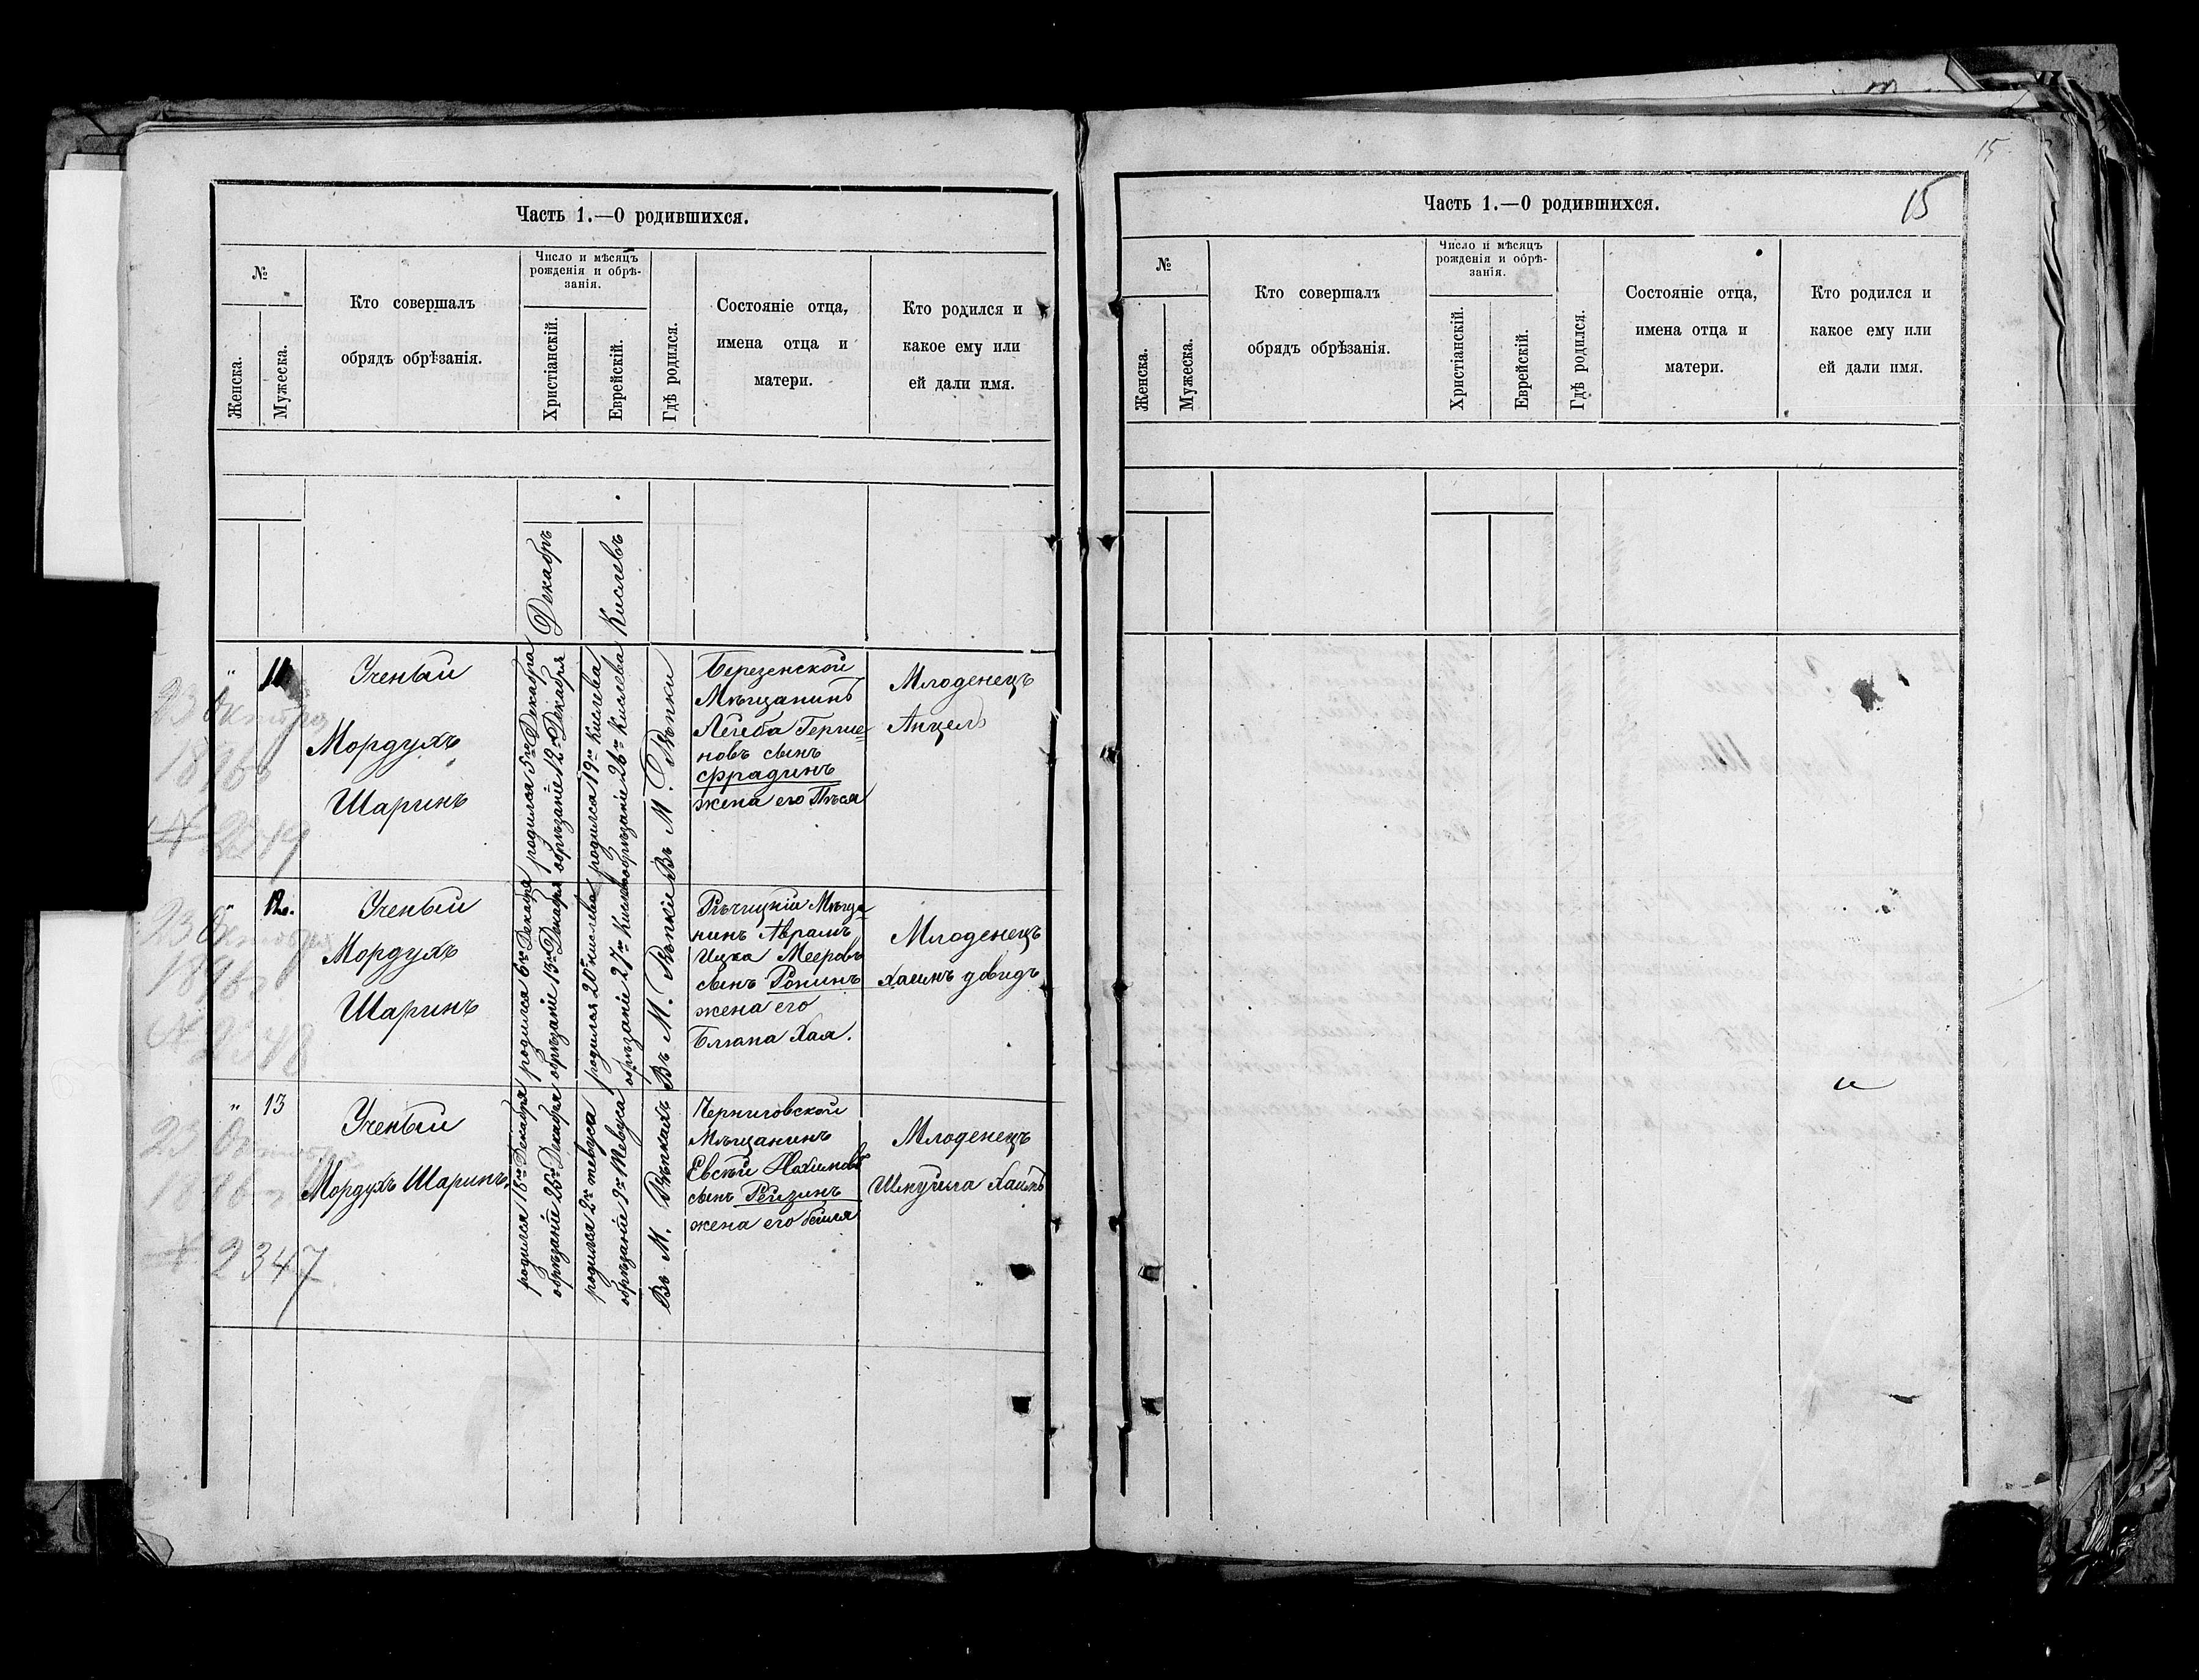 Часть 1.—О родившихся.
№
Женска.
Мужеска.
Кто совершалъ
обрядъ обрѣзанія.
Число и мѣсяцъ
рожденія и обрѣ-
занія.
Христіанскій.
Еврейскій.
Гдѣ родился.
Состояніе отца,
имена отца и
матери.
Кто родился и
какое ему или
ей дали имя.
Декабръ
Кислевъ
23 Октября
1896
№ 2349
" 11
Ученый
Мордухъ
Шаринъ
родился 5го Декабра
обрѣзаніе 12го Декабря
родился 19го Кислева
обрѣзаніе 26го Кислева
Въ М. Рѣпки
Березенской
Мѣщанинъ
Лейба Герше-
новъ сынъ
Фрадинъ
жена его Пѣся
Младенецъ
Анцелъ
23 Октября
1896 г
№ 2348
" 12.
Ученый
Мордухъ
Шаринъ
родился 6го Декабря
обрѣзаніе 13го Декабря
родился 20го кислева
обрѣзаніе 27го Кислева
Въ М. Рѣпкіе
Рѣчицкій Мѣща-
нинъ Аврамъ
Ицка Мееровъ
сынъ Ронинъ
жена его
Блюма Хая.
Младенецъ
Хаимъ довидъ
23 Октября
1896 г
№ 2347
" 13
Ученый
Мордухъ Шаринъ.
родился 18го Декабря
обрѣзаніе 25го Декабря
родился 2го тевуса
обрѣзаніе 9го Тевуса
Въ М. Рѣпкахъ
Черниговской
Мѣщанинъ
Евсѣй Нохимовъ
сынъ Рейзинъ
жена его Бейля
Младенецъ
Шмуйла Хаимъ
15
15
Часть 1.—О родившихся.
№
Женска.
Мужеска.
Кто совершалъ
обрядъ обрѣзанія.
Число и мѣсяцъ
рожденія и обрѣ-
занія.
Христіанскій.
Еврейскій.
Гдѣ родился.
Состояніе отца,
имена отца и
матери.
Кто родился и
какое ему или
ей дали имя.